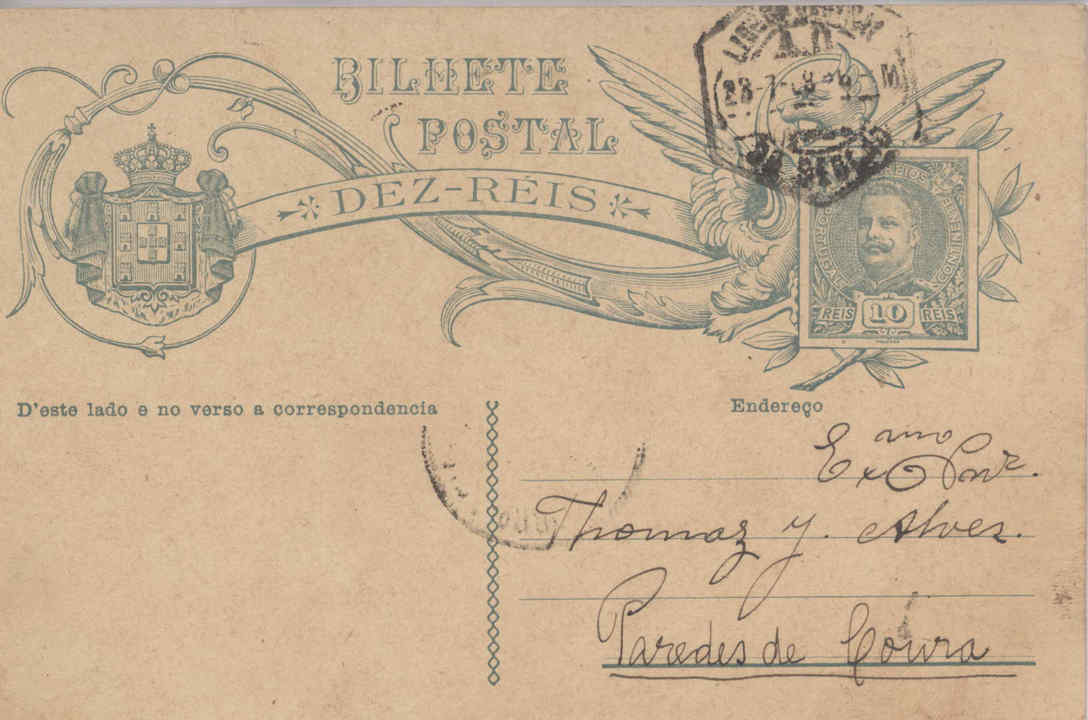 BILHETE
POSTAL
DEZ-RÉIS
CORREIOS
PORTUGAL
CONTINENTE
REIS 10 REIS
D'este lado e no verso a correspondencia
Endereço
Exmo Snr.
Thomaz J. Alves.
Paredes de Coura